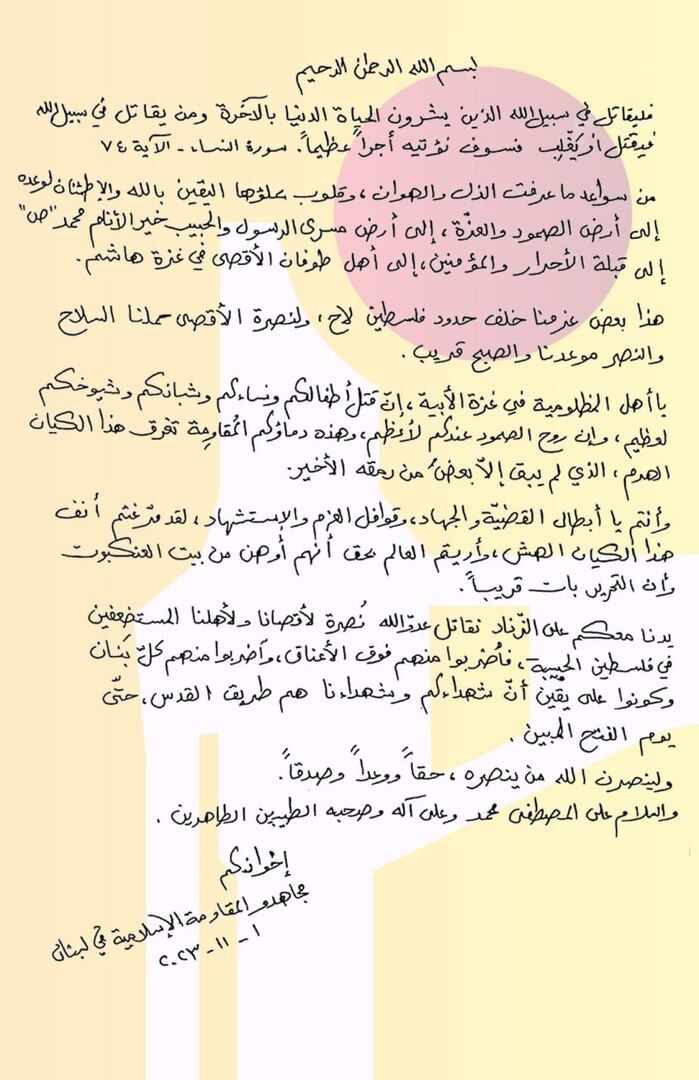 بسم الله الرحمن الرحيم
فليقاتل في سبيل الله الذين يشرون الحياة الدنيا بالآخرة ومن يقاتل في سبيل الله
فيقتل أو يَغلِب فسوف نؤتيه أجراً عظيماً. سورة النساء - الآية ٧٤
من سواعد ما عرفت الذل والهوان، وقلوب يملؤها اليقين بالله والإطمئنان لوعده
إلى أرض الصمود والعزّة، إلى أرض مسرى الرسول والحبيب خير الأنام محمد "ص"
إلى قبلة الأحرار والمؤمنين، إلى أهل طوفان الأقصى في غزة هاشم.
هذا بعض عزمنا خلف حدود فلسطين لاح، ولنصرة الأقصى حملنا السلاح
والنصر موعدنا والصبح قريب.
يا أهل المظلومية في غزة الأبيّة، إنّ قتل أطفالكم ونساءكم وشبانكم وشيوخكم
لعظيم، وإن روح الصمود عندكم لأعظم، وهذه دماؤكم المُقاوِمة تغرق هذا الكيان
الهرم، الذي لم يبق إلاّ بعضٌ من رمقه الأخير.
وأنتم يا أبطال القضيّة والجهاد، وقوافل العزم والإستشهاد، لقد مرّغتم أنف
هذا الكيان الهش، وأريتم العالم بحق أنهم أوهن من بيت العنكبوت
وأن التحرير بات قريباً.
يدنا معكم على الزّناد نقاتل عدوّ الله نُصرة لأقصانا ولأهلنا المستضعفين
في فلسطين الحبيبة، فأضربوا منهم فوق الأعناق، وأضربوا منهم كلّ بَنان
وكونوا على يقين أنّ شهداءكم وشهداءنا هم طريق القدس، حتّى
يوم الفتح المبين.
ولينصرن الله من ينصره، حقاً ووعداً وصدقاً.
والسلام على المصطفى محمد وعلى آله وصحبه الطيبين الطاهرين.
إخوانكم
مجاهدو المقاومة الإسلامية في لبنان
١ - ١١ - ٢٠٢٣